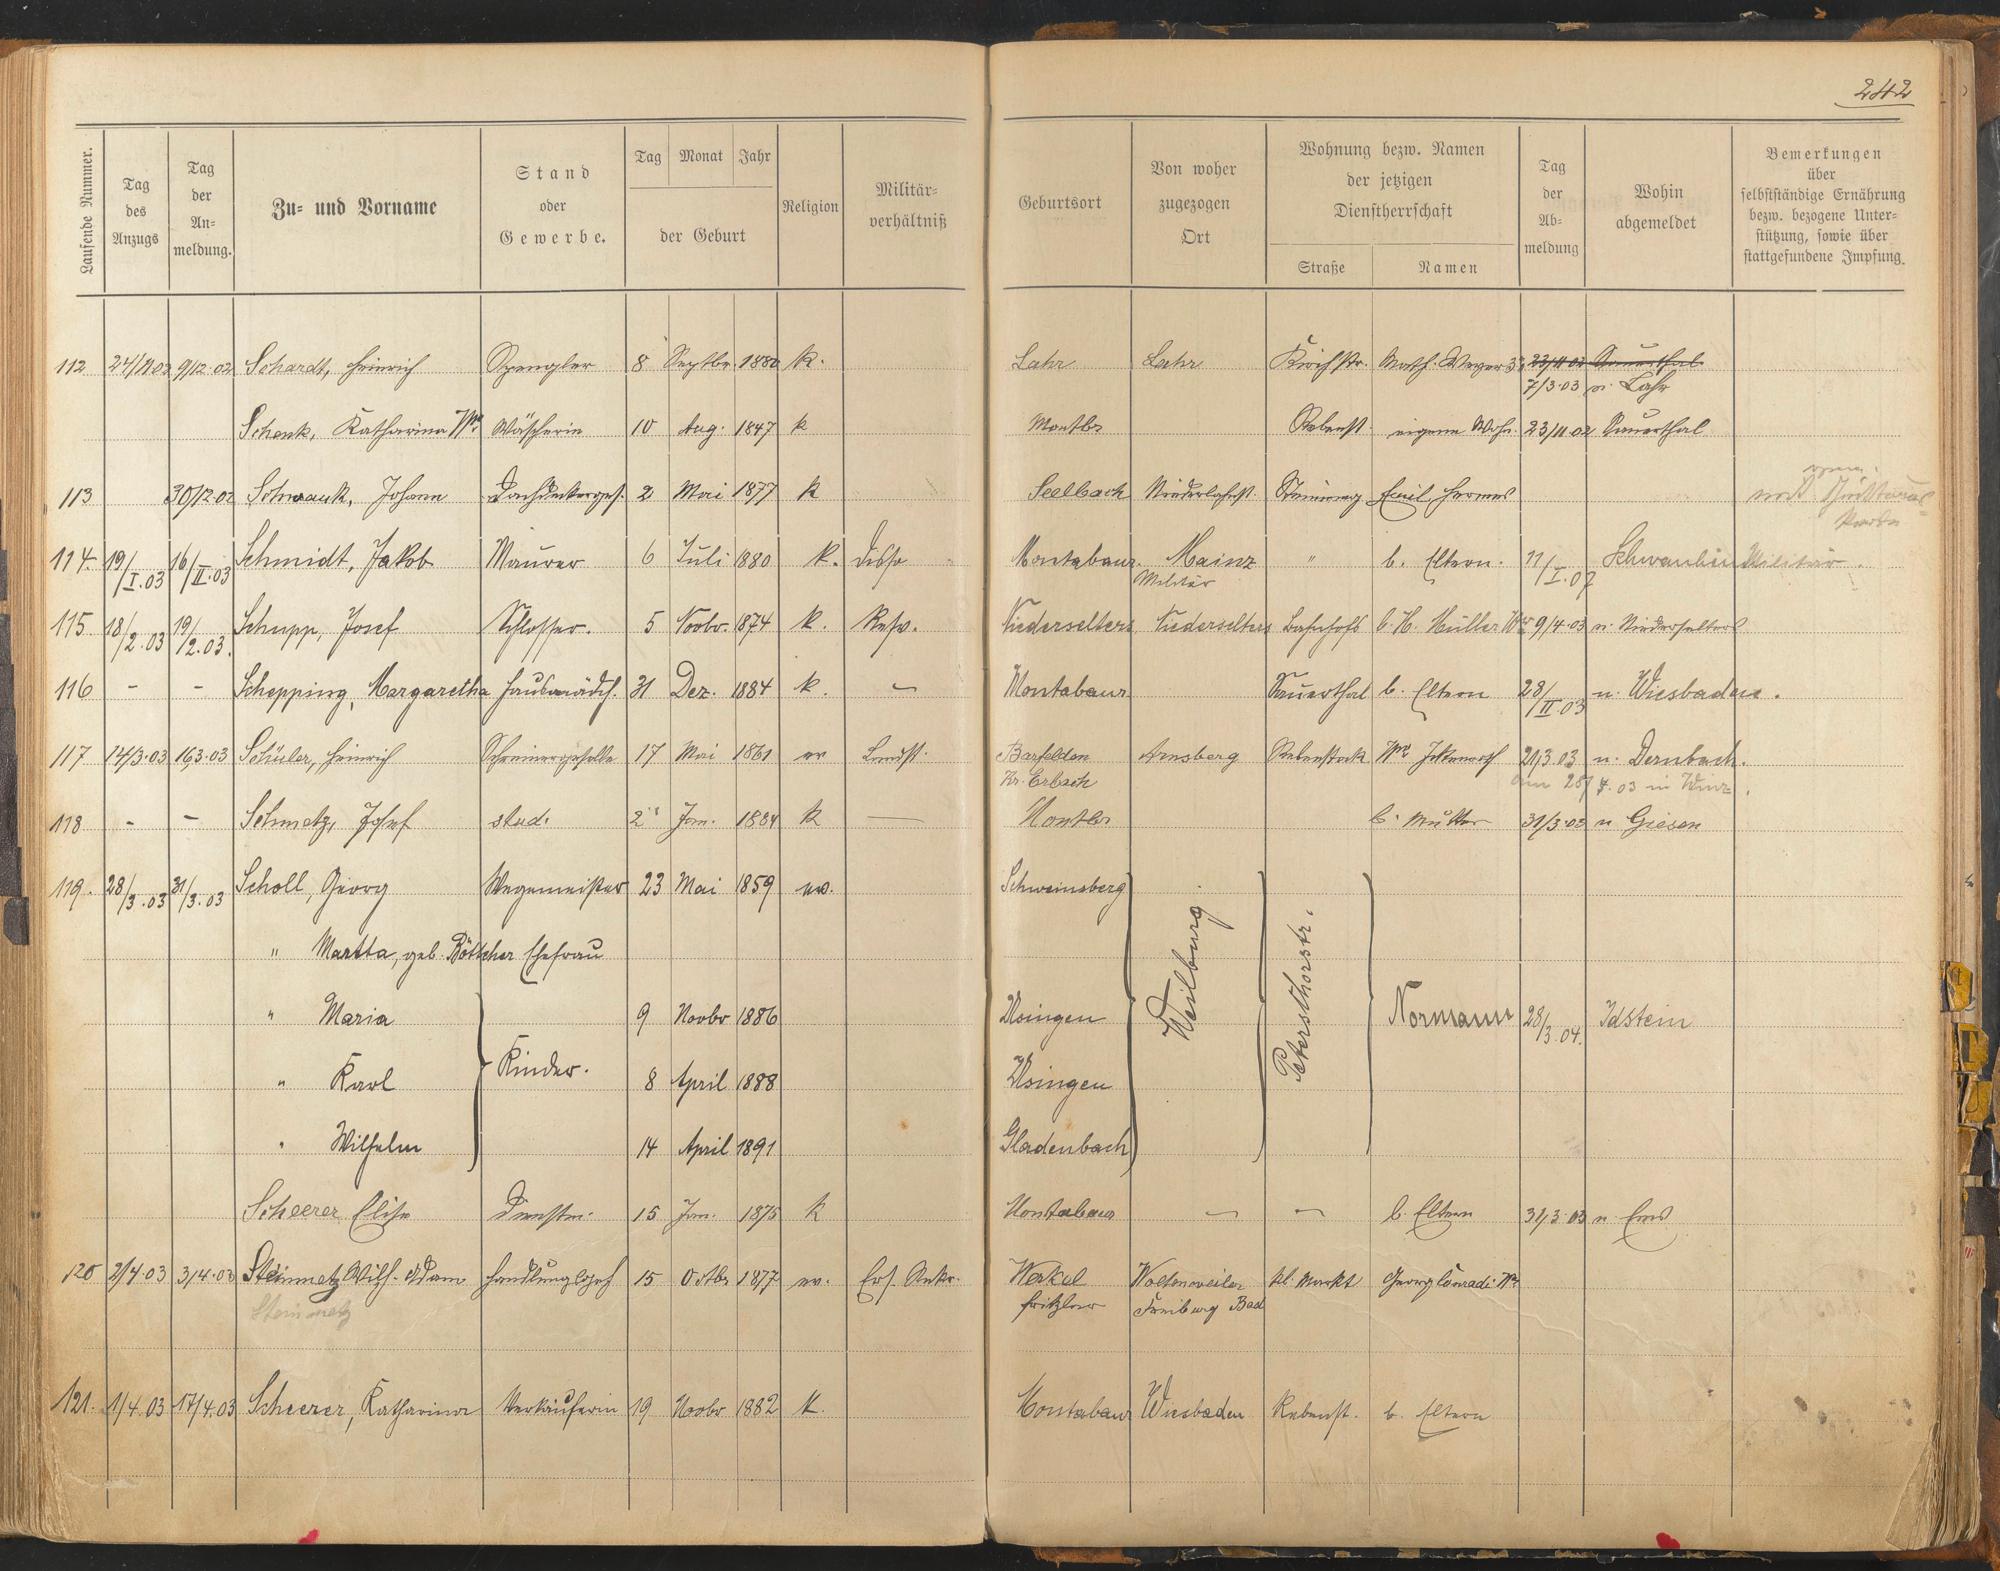 242
Laufende Nummer.
Tag des Anzugs
Tag der An-meldung.
Zu- und Vorname
Stand oder Gewerbe.
Tag Monat Jahr
der Geburt
Religion
Militär-verhältniß
Geburtsort
Von woher zugezogen Ort
Wohnung bezw. Namen der jetzigen Dienstherrschaft
Straße Namen
Tag der Ab-meldung
Wohin abgemeldet
Bemerkungen über selbstständige Ernährung bezw. bezogene Unter-stützung, sowie über stattgefundene Impfung.
112 24/11 02 9/12 02 Schardt, Heinrich Spengler 8 Septbr. 1880 k. Lahr Lahr Kirchstr. Math. Meyer 23/11 02 Sauerthal
7/3.03 n. Lahr
Schenk, Katharina Ww. Wäscherin 10 Aug. 1847 k Montbr Rebenst. eigene Wohn. 23/11 02 Sauerthal
113 30/12.02 Schwank, Johann Dachdeckerges. 2 Mai 1877 k Seelbach Niederlahnst. Steinweg Emil Hermes
114. 19/I.03 16/II.03 Schmidt, Jakob Maurer 6 Juli 1880 k. Disp Montabaur. Mainz " b. Eltern. 11/I.07 Militär.
Militär
115 18/2.03 19/2.03. Schupp, Josef Schlosser. 5 Novbr. 1874 k. Resv. Niederselters Niederselters Bahnhofs b. H. Müller Wwe 9/4.03 n. Niederselters
116 - - Schepping, Margaretha Hausmädch. 31 Dez. 1884 k. - Montabaur Sauerthal b. Eltern 28/II 03 n. Wiesbaden.
117 14/3.03 16/3.03 Schüler, Heinrich Schreinergeselle 17 Mai 1861 ev Landst. Beerfelden Arnsberg Rebenstock Ww. 21/3.03 n. Dernbach.
Kr. Erbach am 28/4.03 in
118 - - Schmetz, Josef stud. 2 Jan. 1884 k — Montbr b. Mutter 31/3.03 n Giesen
119. 28/3.03 31/3.03 Scholl, Georg Wegemeister 23 Mai 1859 ev. Schweinsberg
" Martha, geb. Böttcher Ehefrau
" Maria 9 Novbr 1886 Usingen Weilburg Petersthorstr. Normann 28/3.04. Idstein
" Karl Kinder. 8 April 1888 Usingen
" Wilhelm 14 April 1891 Gladenbach
Scheerer Elise Dienstm. 15 Jan. 1875 k Montabaur - - b. Eltern 31/3.03 n. Ems
120 2/4.03 3/4.03 Steinmetz Wilh. Adam Handlungsgeh 15 Octbr 1877 ev. Ers. Rekr. Werkel Wolfenweiler kl. Markt Georg Conradi Ww.
Steinmetz Fritzlar Freiburg Bad
121. 1/4.03 17/4.03 Scheerer, Katharina Verkäuferin 19 Novbr 1882 k. Montabaur Wiesbaden Rebenst. b. Eltern